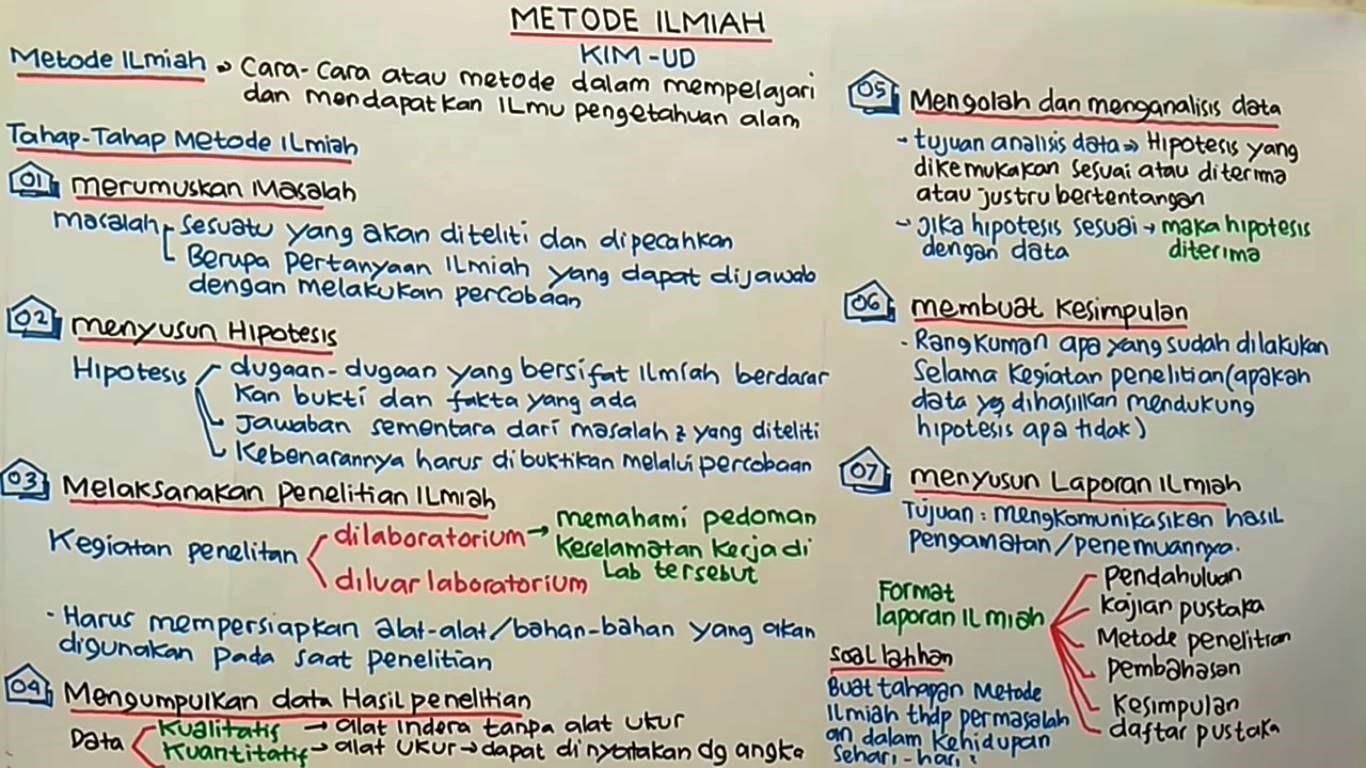 METODE ILMIAH
KIM-UD
Metode ILmiah → Cara-Cara atau metode dalam mempelajari
dan mendapatkan ILmu pengetahuan alam
Tahap-Tahap Metode ILmiah
01 merumuskan Masalah
Masalah - sesuatu yang akan diteliti dan dipecahkan
- Berupa pertanyaan ILmiah yang dapat dijawab
dengan melakukan percobaan
02 menyusun Hipotesis
Hipotesis - dugaan-dugaan yang bersifat ilmiah berdasar
Kan bukti dan fakta yang ada
- Jawaban sementara dari masalah z yang diteliti
- Kebenarannya harus dibuktikan melalui percobaan
03 Melaksanakan Penelitian ILmiah
Kegiatan penelitan
dilaboratorium → memahami pedoman
Keselamatan kerja di
Lab tersebut
diluar laboratorium
- Harus mempersiapkan alat-alat/bahan-bahan yang akan
digunakan pada saat penelitian
04 Mengumpulkan data Hasil penelitian
Data
Kualitatif → alat indera tanpa alat ukur
Kuantitatif → alat ukur → dapat dinyatakan dg angka
05 Mengolah dan menganalisis data
- tujuan analisis data ⇒ Hipotesis yang
dikemukakan sesuai atau diterima
atau justru bertentangan
- Jika hipotesis sesuai → maka hipotesis
dengan data diterima
06 membuat Kesimpulan
- Rangkuman apa yang sudah dilakukan
Selama kegiatan penelitian (apakah
data yg dihasilkan mendukung
hipotesis apa tidak)
07 menyusun Laporan ILmiah
Tujuan : mengkomunikasikan hasil
pengamatan/penemuannya.
Format
laporan ILmiah
Pendahuluan
Kajian pustaka
Metode penelitian
pembahasan
Kesimpulan
daftar pustaka
Soal latihan
Buat tahapan Metode
Ilmiah thdp permasalah
an dalam Kehidupan
Sehari-hari :